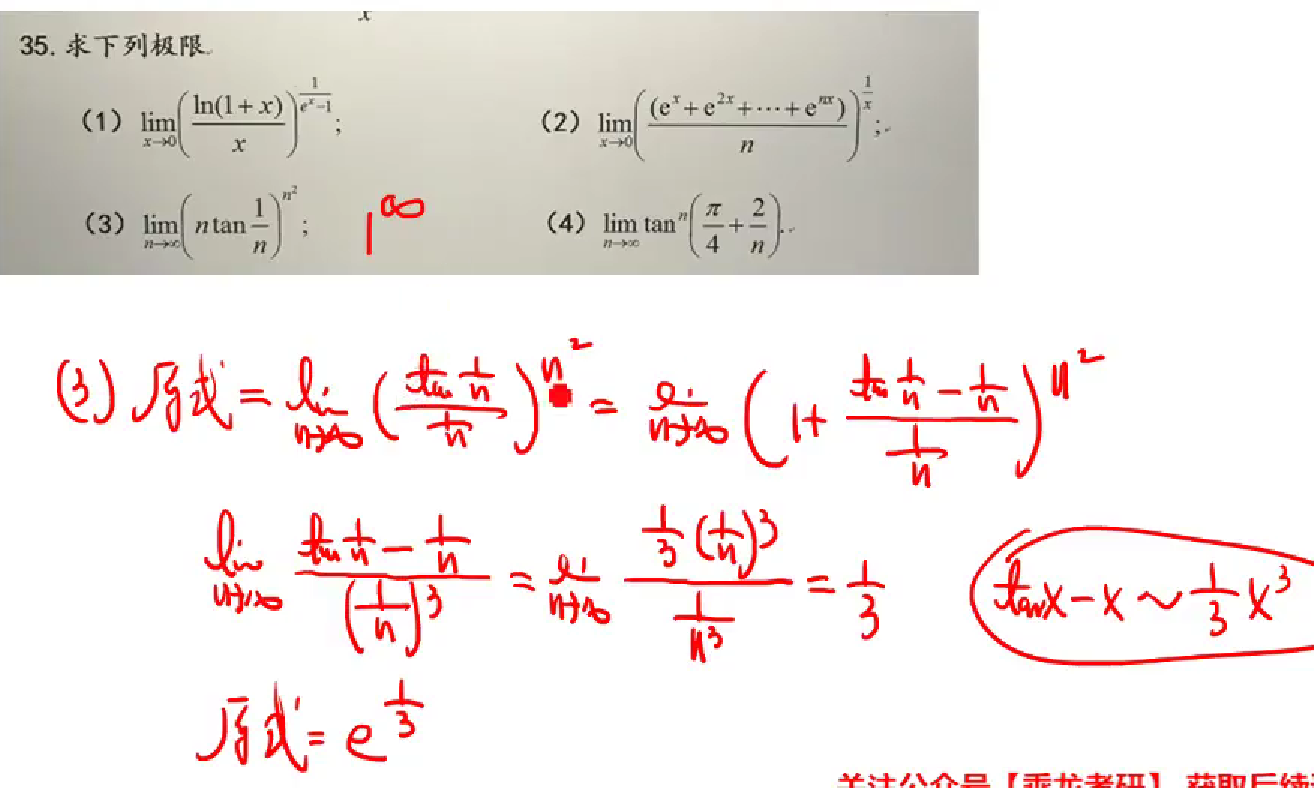 x
35. 求下列极限.
(1) lim_{x→0} (ln(1+x)/x)^{1/(e^x−1)};
(2) lim_{x→0} ((e^x+e^{2x}+⋯+e^{nx})/n)^{1/x};
(3) lim_{n→∞} (n tan 1/n)^{n^2}; 1^∞
(4) lim_{n→∞} tan^n (π/4+2/n).
(3) 原式 = lim_{n→∞} (tan 1/n / 1/n)^{n^2} = lim_{n→∞} (1+ (tan 1/n − 1/n) / 1/n)^{n^2}
lim_{n→∞} (tan 1/n − 1/n) / (1/n)^3 = lim_{n→∞} 1/3 (1/n)^3 / 1/n^3 = 1/3
tanx−x ~ 1/3 x^3
原式 = e^{1/3}
关注公众号【乘龙考研】 获取后续